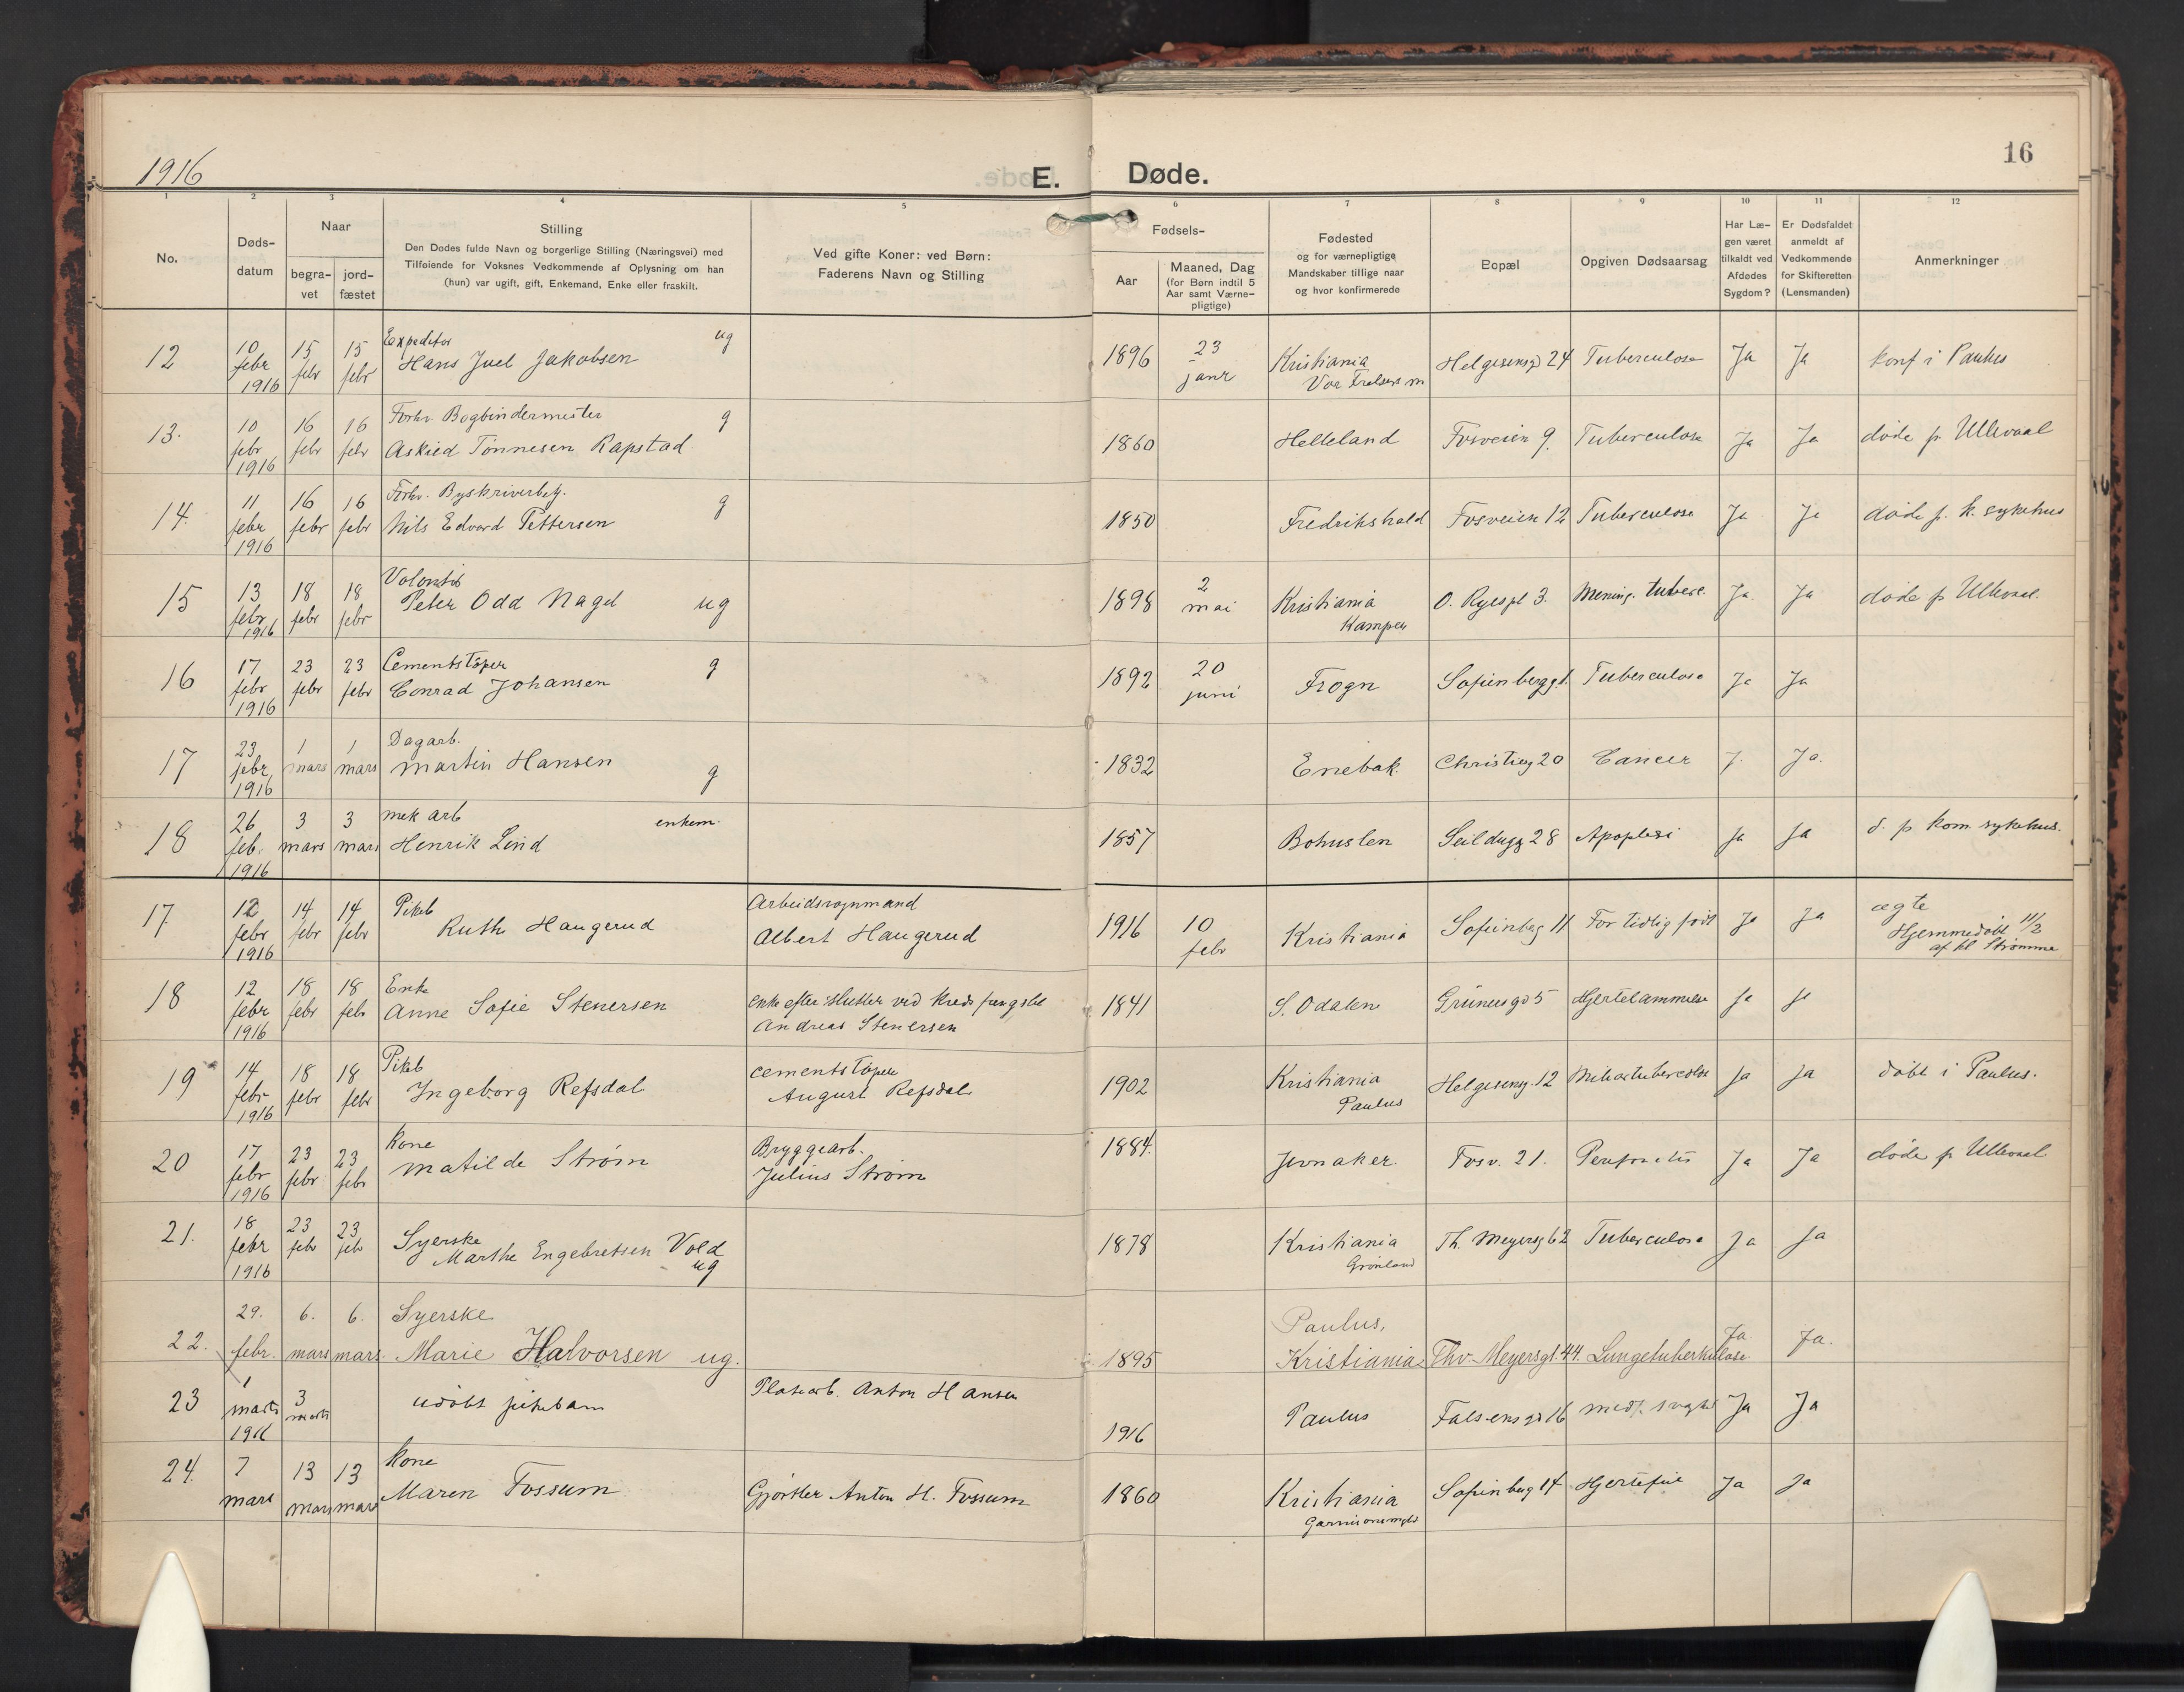 1916
E.
Døde.
16
1 2 3 4 5 6 7 8 9 10 11 12
No.
Døds-
datum
Naar
begra-
vet
jord-
fæstet
Stilling
Den Dødes fulde Navn og borgerlige Stilling (Næringsvei) med
Tilføiende for Voksnes Vedkommende af Oplysning om han
(hun) var ugift, gift, Enkemand, Enke eller fraskilt.
Ved gifte Koner: ved Børn:
Faderens Navn og Stilling
Fødsels-
Aar
Maaned, Dag
(for Børn indtil 5
Aar samt Værne-
pligtige)
Fødested
og for værnepligtige
Mandskaber tillige naar
og hvor konfirmerede
Bopæl
Opgiven Dødsaarsag
Har Læ-
gen været
tilkaldt ved
Afdødes
Sygdom?
Er Dødsfaldet
anmeldt af
Vedkommende
for Skifteretten
(Lensmanden)
Anmerkninger
12 10 febr 1916 15 febr 15 febr Expeditør ug
Hans Juel Jakobsen
1896 23 janr Kristiania Vor Frelsers m Helgesensgd 24 Tuberculose Ja Ja konf i Paulus
13. 10 febr 1916 16 febr 16 febr Forhv. Bogbindermester g
Askild Tønnesen Rapstad
1860 Helleland Fosveien 9. Tuberculose Ja Ja døde p. Ullevaal
14. 11 febr 1916 16 febr 16 febr Forhv. Byskriverbetj. g
Nils Edvard Pettersen
1850 Fredrikshald Fosveien 12 Tuberculose Ja Ja døde p. k. sykehus
15 13 febr 1916 18 febr 18 febr Volontør
Peter Odd Nagel ug
1898 2 mai Kristiania Kampen O. Ryespl 3. Mening. tuberc. Ja. Ja døde p Ullevaal.
16 17 febr 1916 23 febr 23 febr Cementstøper g
Conrad Johansen
1892 20 juni Frogn Sofienbergg. 1. Tuberculose Ja Ja
17 23 febr 1916 1 mars 1 mars Dagarb.
Martin Hansen g
1832 Enebak. Christieg 20 Cancer J. Ja.
18 26 feb. 1916 3 mars 3 mars mek arb enkem.
Henrik Lind
1857 Bohuslen Seildugg 28 Apoplexi Ja Ja d. p kom. sykehus.
17 12 febr 1916 14 febr 14 febr Pikeb Arbeidsvognmand
Ruth Haugerud Albert Haugerud
1916 10 febr Kristiania Sofienbg 11 For tidlig født Ja Ja ægte
Hjemmedøbt 11/2
af kl Strømme
18 12 febr 1916 18 febr 18 febr Enke
Anne Sofie Stenersen enke efter slutter ved kredsfengslet
Andreas Stenersen
1841 S. Odalen Grünersgd 5 Hjertelammelse Ja Ja
19 14 febr 1916 18 febr 18 febr Pikeb cementstøper
Ingeborg Refsdal August Refsdal
1902 Kristiania Paulus Helgesensg. 12 Miliartuberculose Ja Ja døbt i Paulus.
20 17 febr 1916 23 febr 23 febr Kone Bryggearb.
Matilde Strøm Julius Strøm
1884. Jevnaker. Fosv. 21. Ja Ja døde p Ullevaal
21. 18 febr 1916 23 febr 23 feb Syerske
Marthe Engebretsen Vold ug
1878 Kristiania Grønland Th. Meyersg 62 Tuberculose Ja Ja
22. 29. febr. 6. mars 6. mars. Syerske
Marie Halvorsen ug.
1895 Paulus, Kristiania Thv. Meyersgt. 44. Lungetuberkulose. Ja. Ja.
23 1 marts 1916 3 marts udøbt pikebarn Platearb. Anton Hansen
1916 Paulus Falsensgd 16 medf. svaghet Ja Ja
24. 7 mars 13 mars 13 mars Kone
Maren Fossum Gjørtler Anton H. Fossum
1860 Kristiania Garnisonsmenigh Sofienbug 14 Hjertefeil Ja Ja